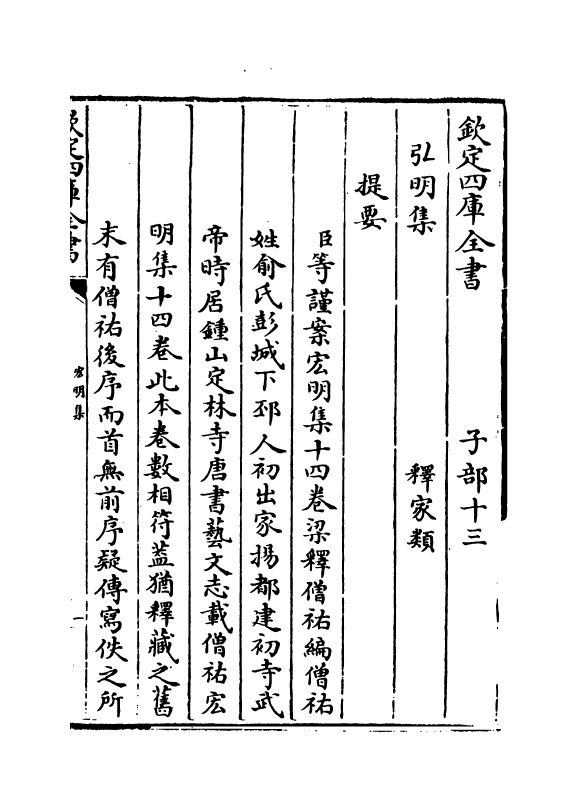 欽定四庫全書　子部十三
弘明集　釋家類
提要
臣等謹案宏明集十四卷梁釋僧祐編僧祐
姓俞氏彭城下邳人初出家揚都建初寺武
帝時居鍾山定林寺唐書藝文志載僧祐宏
明集十四卷此本卷數相符葢猶釋藏之舊
末有僧祐後序而首無前序疑傳寫佚之所
欽定四庫全書
宏明集
一